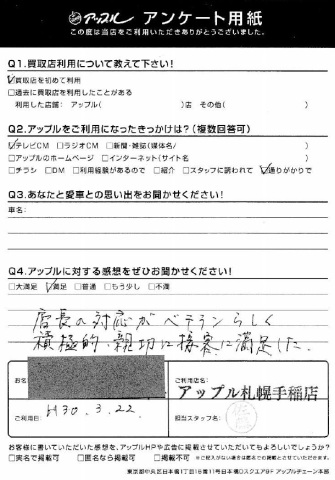 アップル アンケート用紙
この度は当店をご利用いただきありがとうございました。
Q1.買取店利用について教えて下さい!
☑買取店を初めて利用
□過去に買取店を利用したことがある
利用した店舗: アップル( )店 その他( )
Q2.アップルをご利用になったきっかけは?(複数回答可)
☑テレビCM □ラジオCM □新聞・雑誌(媒体名/ )
□アップルのホームページ □インターネット(サイト名 )
□チラシ □DM □利用経験があるので □紹介 □スタッフに誘われて ☑通りがかりで
Q3.あなたと愛車との思い出をお聞かせください!
車名:
Q4.アップルに対する感想をぜひお聞かせください!
□大満足 ☑満足 □普通 □もう少し □不満
店長の対応がベテランらしく
積極的、親切に接客に満足した。
お名
ご利用店名:
アップル札幌手稲店
ご利用日: H30.3.22
担当スタッフ名:
お客様に書いていただいた感想を、アップルHPや広告に掲載させていただいてもよろしいでしょうか?
□実名で掲載可 □匿名なら掲載可 □掲載不可
東京都中央区日本橋1丁目19番11号日本橋DスクエアBF アップルチェーン本部